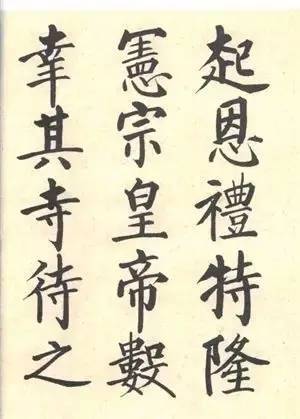 起恩禮特隆
憲宗皇帝數
幸其寺待之